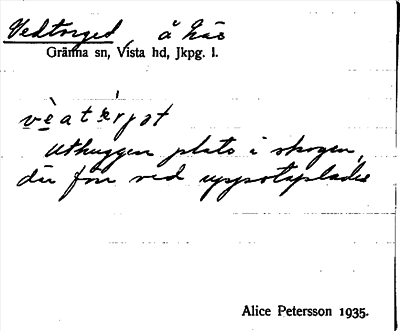 Vedtorget, å häs
Gränna sn, Vista hd, Jkpg. l.
Uthuggen plats i skogen,
där förr ved uppstaplades
Alice Petersson 1935.